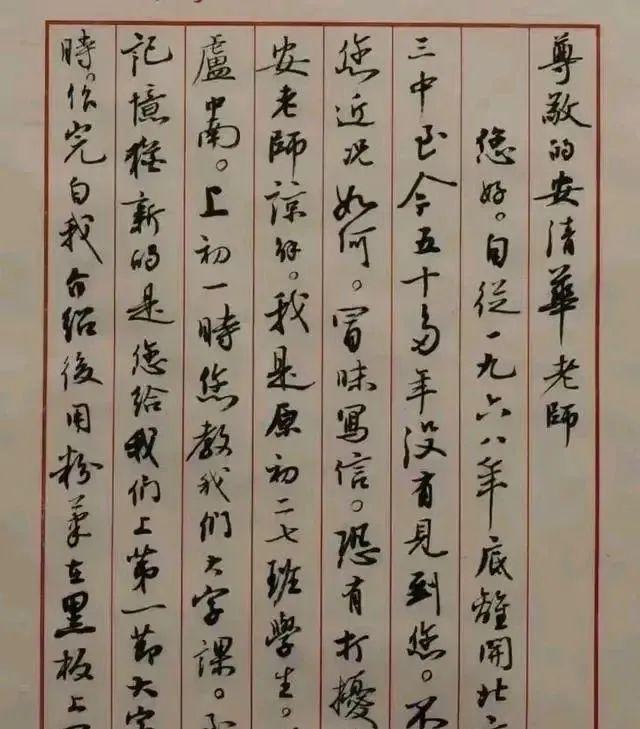 尊敬的安清華老師
您好。自從一九六八年底離開北
三中至今五十多年没有見到您。不
您近况如何。冒昧寫信。恐有打擾
安老師諒解。我是原初二七班學生。
盧中南。上初一時您教我們大字課。
記憶猶新的是您給我們上第一節大字
時。作完自我介紹後用粉筆在黑板上